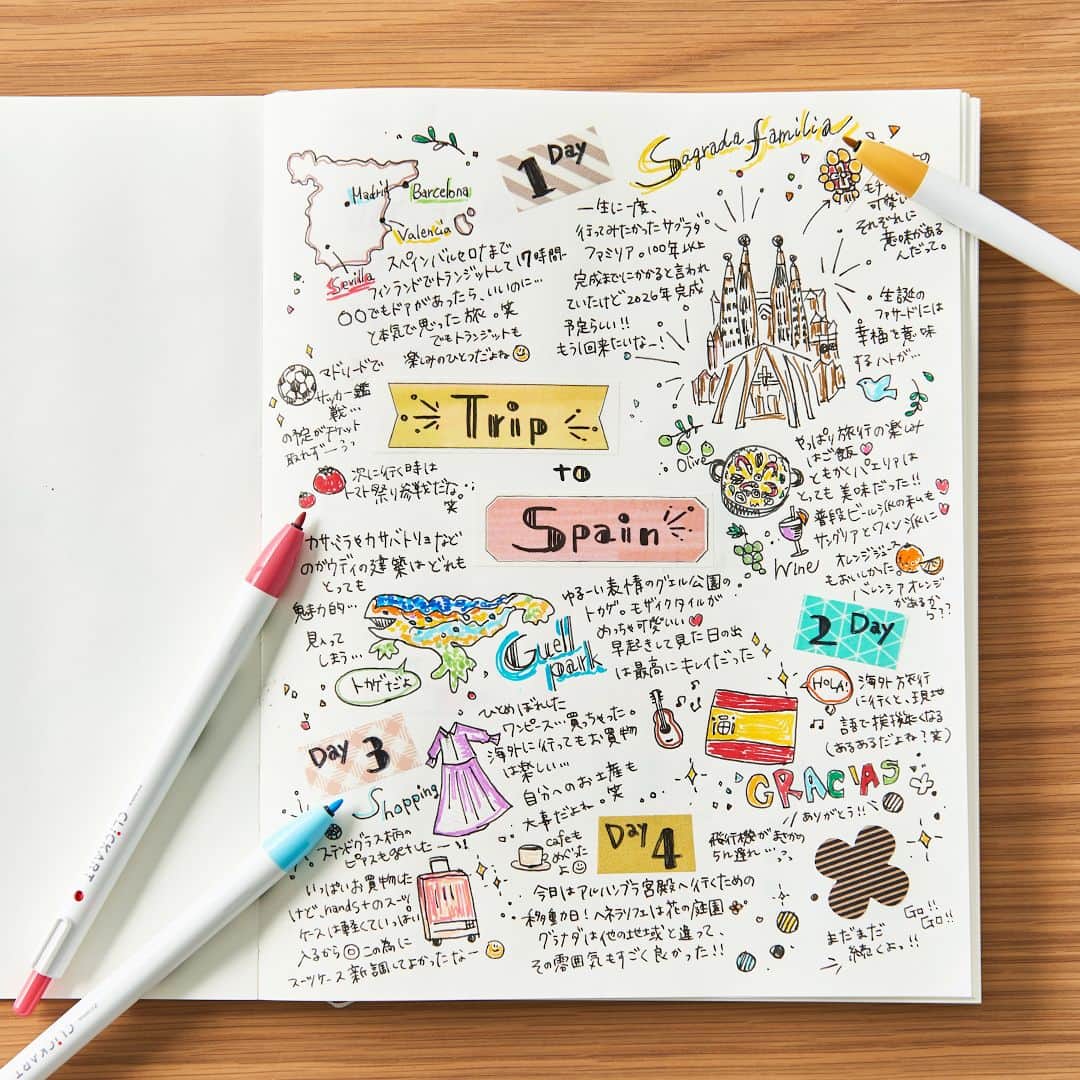 1 Day
Sagrada familia
Madrid
Barcelona
Valencia
Sevilla
スペインバルセロナまで
フィンランドでトランジットして17時間…
〇〇でもドアがあったら、いいのに…
と本気で思った旅。笑
でもトランジットも
楽しみのひとつだよね
一生に一度、
行ってみたかったサグラダ
ファミリア。100年以上
完成までにかかると言われ
ていたけど2026年完成
予定らしい!!
もう1回来たいなー!
の
可愛い
それぞれに
意味がある
んだって。
生誕の
ファサードには
幸福を意味
するハトが…
マドリードで
サッカー鑑
戦…
の予定がチケット
取れずーぅっ
Trip
to
Spain
次に行く時は
トマト祭り参戦だな。
笑
Olive
やっぱり旅行の楽しみ
はご飯
ともかくパエリアは
とっても美味だった!!
普段ビール派の私も
サングリアとワイン派に
Wine
オレンジジュース
もおいしかった
バレンシアオレンジ
があるから??
カサ・ミラやカサ・バトリョなど
のガウディの建築はどれも
とっても
魅力的…
見入って
しまう…
トカゲだよ
Guell
park
ゆるーい表情のグエル公園の
トカゲ。モザイクタイルが
めっちゃ可愛いい
早起きして見た日の出
は最高にキレイだった
2 Day
HOLA!
海外旅行
に行くと、現地
語で挨拶したくなる
(あるあるだよね?笑)
GRACIAS
ありがとう!!
Day 3
Shopping
ひとめぼれした
ワンピース…買っちゃった。
海外に行ってもお買物
は楽しい…
自分へのお土産も
大事だよね。笑
ステンドグラス柄の
ピアスもgetしたー!!
いっぱいお買物した
けど、hands+のスーツ
ケースは軽くていっぱい
入るから◎この為に
スーツケース新調してよかったなー
cafeも
めぐった
よ
Day 4
飛行機がまさかの
5h遅れ…
今日はアルハンブラ宮殿へ行くための
移動日!ヘネラリフェは花の庭園
グラナダは他の地域と違って、
その雰囲気もすごく良かった!!
まだまだ
続くよっ!!
Go!!
Go!!
CLiCKART
CLiCKART